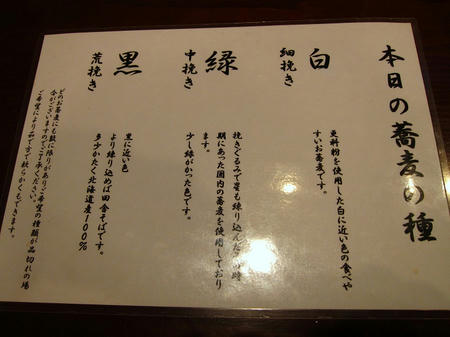 本日の蕎麦の種
白
細挽き
更科粉を使用した白に近い色の食べや
すいお蕎麦です。
緑
中挽き
挽きぐるみで甘も練り込んだ
時
期にあった国内の蕎麦を使用しており
ます。
少し緑がかった色です。
黒
荒挽き
黒に近い色
より練り込めば田舎そばです。
多少かたく北海道産100%
どのお蕎麦にも数に限りがあり
ご希望の種類が品切れの場
合がございますのでご了承ください。
ご希望によりゆで方で軟らかくもできます。